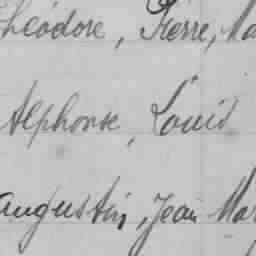 Théodore, Pierre, Ma
Alphonse, Louis
Augustin, Jean Mar